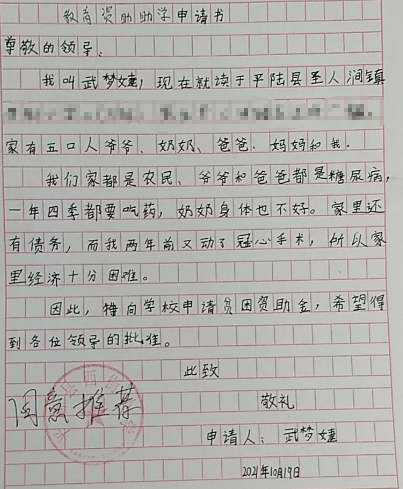 教育资助助学申请书
尊敬的领导：
我叫武梦婕，现在就读于平陆县圣人涧镇
家有五口人爷爷、奶奶、爸爸、妈妈和我.
我们家都是农民、爷爷和爸爸都是糖尿病，
一年四季都要吃药，奶奶身体也不好。家里还
有债务，而我两年前又动了冠心手术，所以家
里经济十分困难。
因此，特向学校申请贫困资助金，希望得
到各位领导的批准。
此致
敬礼
同意推荐
申请人：武梦婕
2021年10月19日